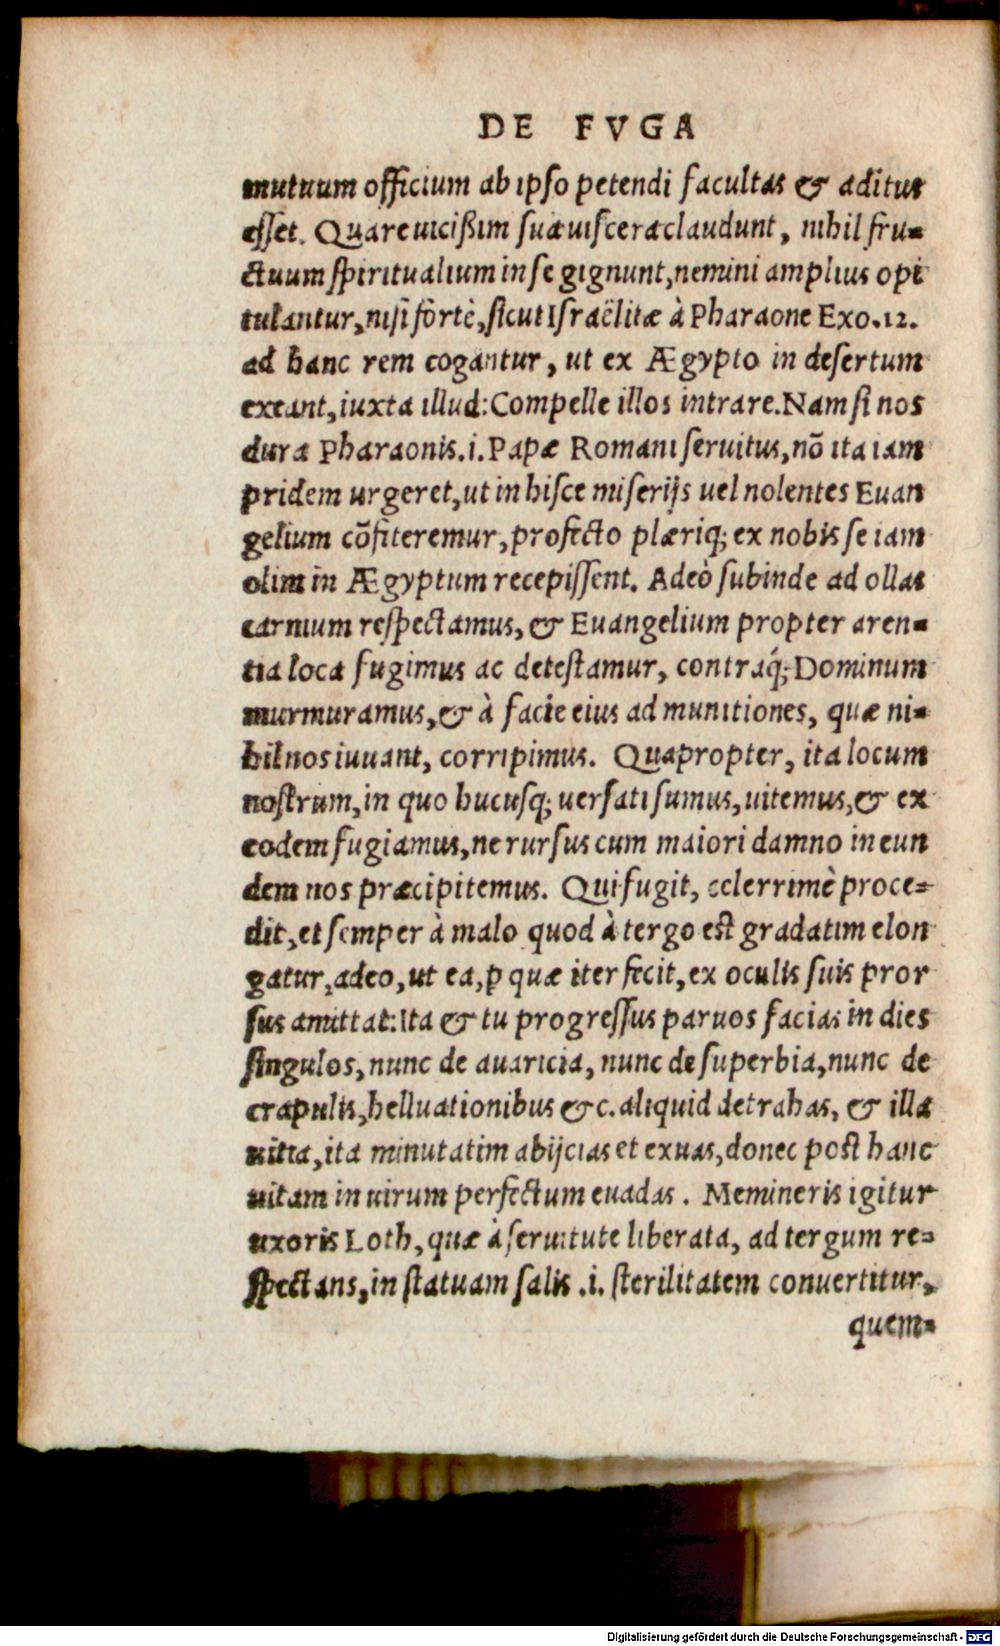 DE FVGA
mutuum officium ab ipso petendi facultas & aditus
esset. Quare uicißim sua uiscera claudunt, nihil fru-
ctuum spiritualium in se gignunt, nemini amplius opi
tulantur, nisi fortè, sicut Israëlitæ à Pharaone Exo.12.
ad hanc rem cogantur, ut ex Ægypto in desertum
exeant, iuxta illud: Compelle illos intrare. Nam si nos
dura Pharaonis .i. Papæ Romani seruitus, nõ ita iam
pridem urgeret, ut in hisce miserijs uel nolentes Euan
gelium cõfiteremur, profecto plæriq; ex nobis se iam
olim in Ægyptum recepissent. Adeò subinde ad ollas
carnium respectamus, & Euangelium propter aren-
tia loca fugimus ac detestamur, contraq́; Dominum
murmuramus, & à facie eius ad munitiones, quæ ni-
hil nos iuuant, corripimus. Quapropter, ita locum
nostrum, in quo hucusq; uersati sumus, uitemus, & ex
eodem fugiamus, ne rursus cum maiori damno in eun
dem nos præcipitemus. Qui fugit, celerrimè proce-
dit, et semper à malo quod à tergo est gradatim elon
gatur, adeo, ut ea, ꝑ quæ iter fecit, ex oculis suis pror
sus amittat: Ita & tu progressus paruos facias in dies
singulos, nunc de auaricia, nunc de superbia, nunc de
crapulis, helluationibus &c. aliquid detrahas, & illa
uitia, ita minutatim abijcias et exuas, donec post hanc
uitam in uirum perfectum euadas. Memineris igitur
uxoris Loth, quæ à seruitute liberata, ad tergum re-
spectans, in statuam salis .i. sterilitatem conuertitur,
quem-
Digitalisierung gefördert durch die Deutsche Forschungsgemeinschaft - DFG